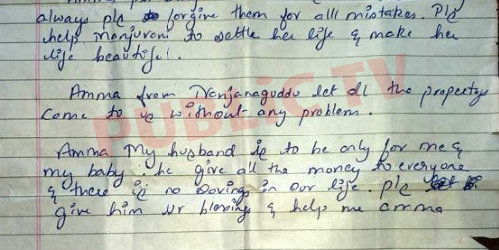 always plz forgive them for all mistakes. Plz
help Manjuram to settle her life & make her
life beautiful.
Amma from Nanjanaguddu let all the property
come to us without any problem.
Amma My husband is to be only for me &
my baby. he give all the money to everyone
& there is no Savings in our life. plz
give him ur blessing & help me amma
PUBLIC TV